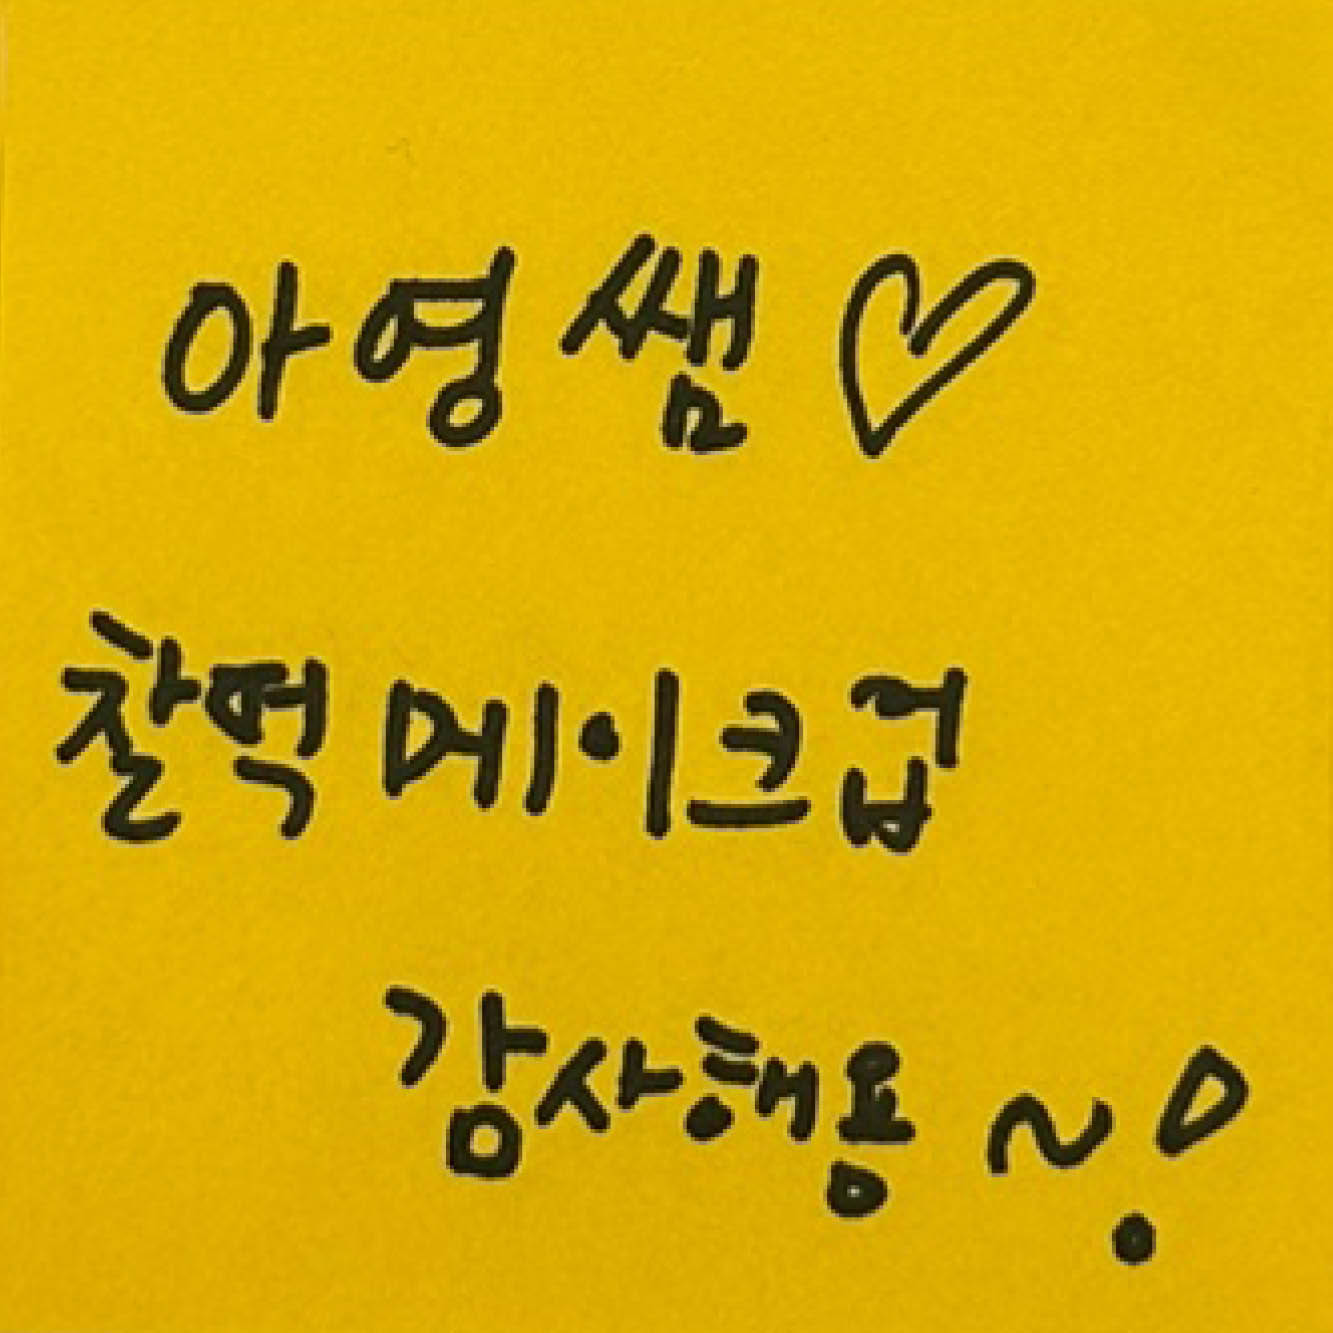 아영쌤♡
찰떡 메이크업
감사해용~!